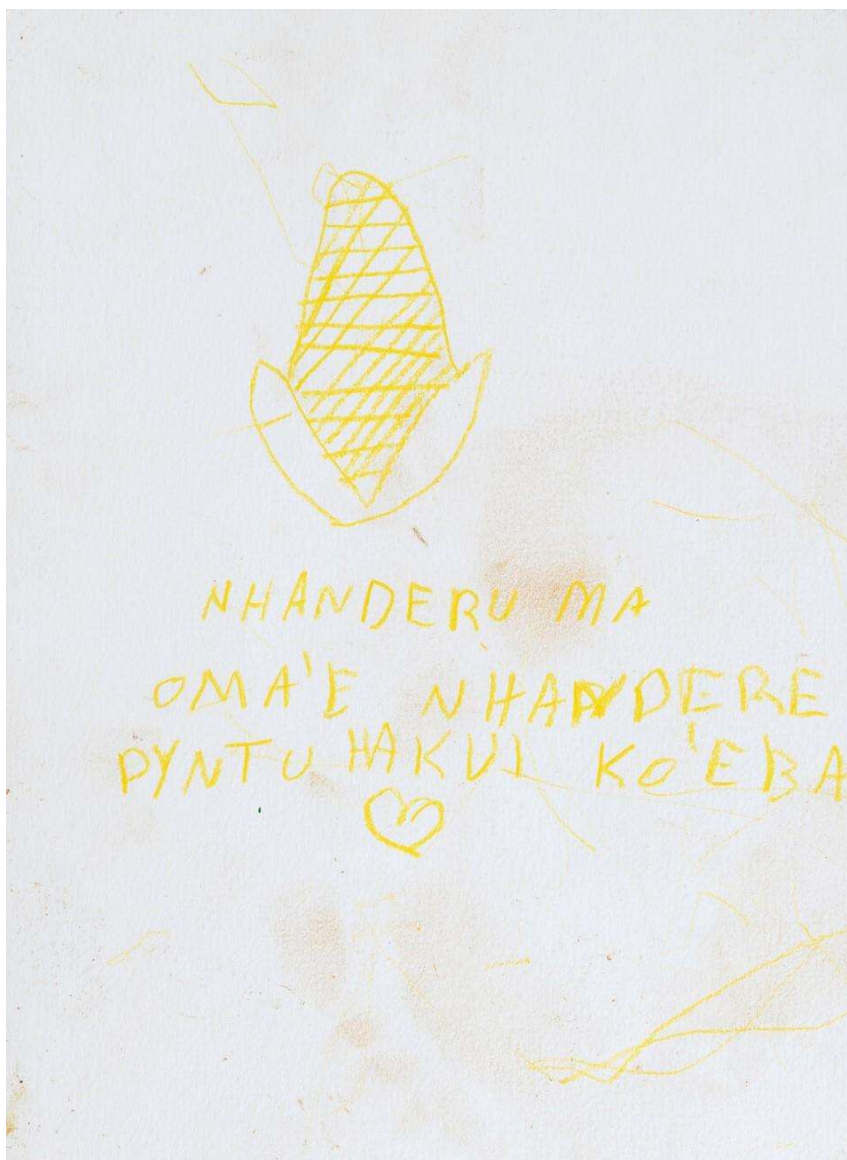 NHANDERU MA
OMA'E NHANDERE
PYNTU HAKUI KO'EBA